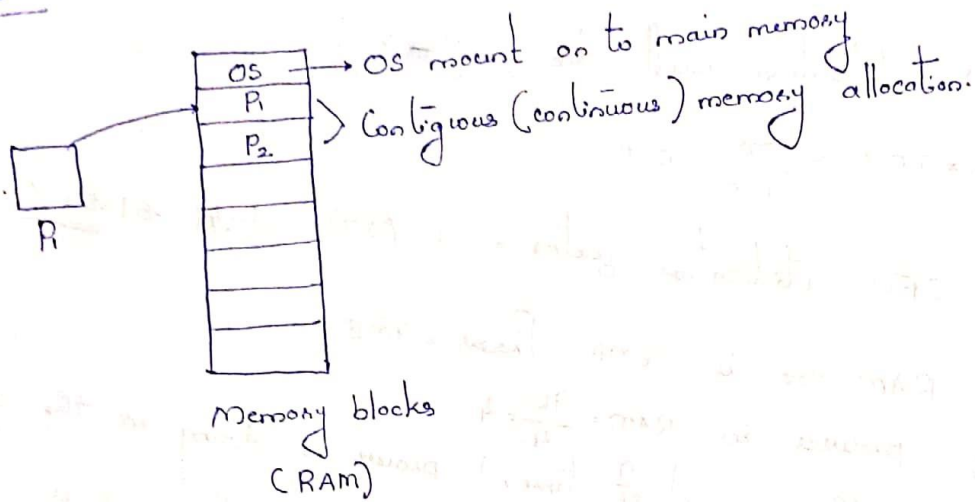 OS → OS mount on to main memory
P1
Contigious (continuous) memory allocation.
P2.
P1
Memory blocks
(RAM)